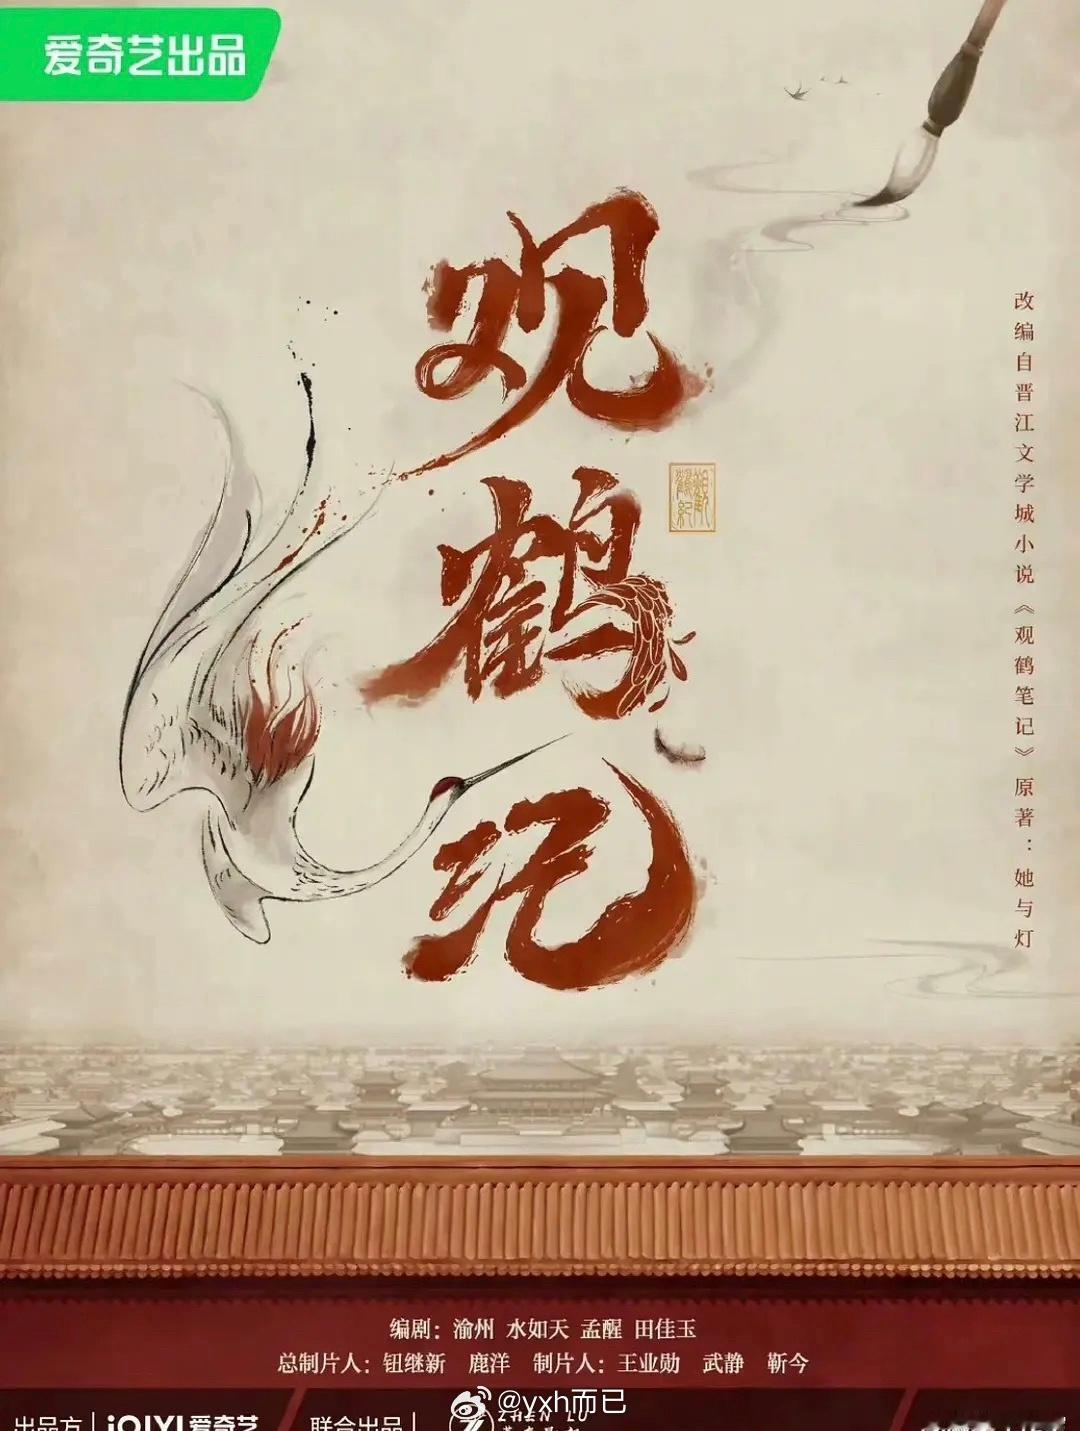 爱奇艺出品
观
鹤
纪
觀鶴紀
改编自晋江文学城小说《观鹤笔记》原著：她与灯
编剧：渝州 水如天 孟醒 田佳玉
总制片人：钮继新 鹿洋 制片人：王业勋 武静 靳今
@yxh而已
出品方 iQIYI 爱奇艺 联合出品 ZHEN LU